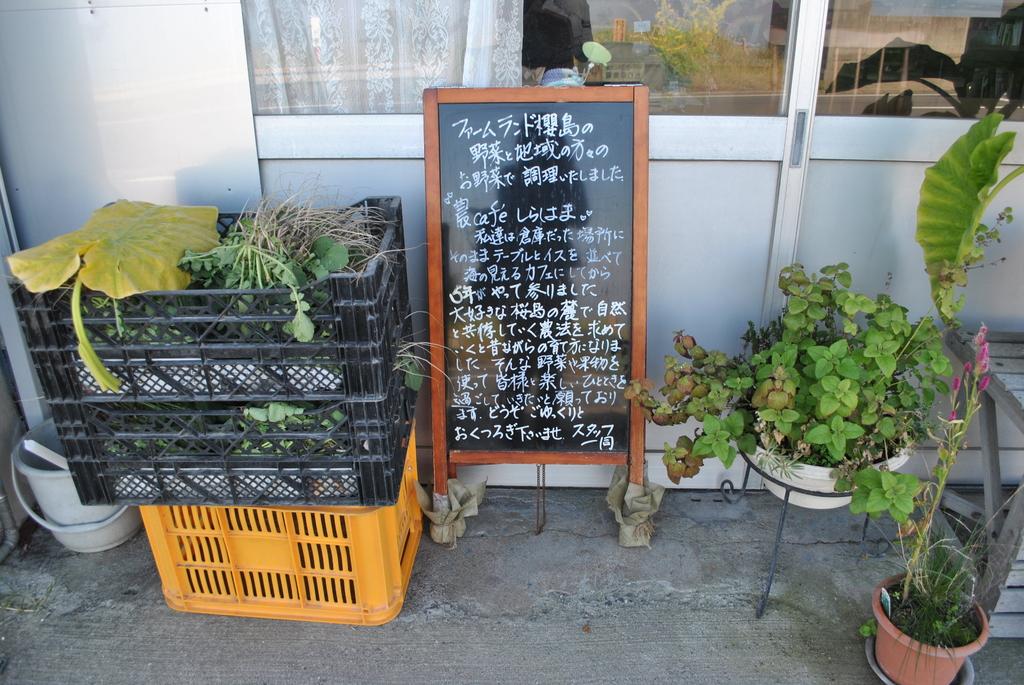 ファームランド櫻島の
野菜と地域の方々の
お野菜で調理いたしました。
農cafe しらはま
私達は倉庫だった場所に
そのままテーブルとイスを並べて
海の見えるカフェにしてから
5年がやって参りました
大好きな桜島の麓で自然
と共存していく農法を求めて
いくと昔ながらの育て方になりま
した。そんな野菜や果物を
使って皆様と楽しいひとときを
過ごしていきたいと願っており
ます。どうぞごゆっくりと
おくつろぎ下さいませ。スタッフ
一同